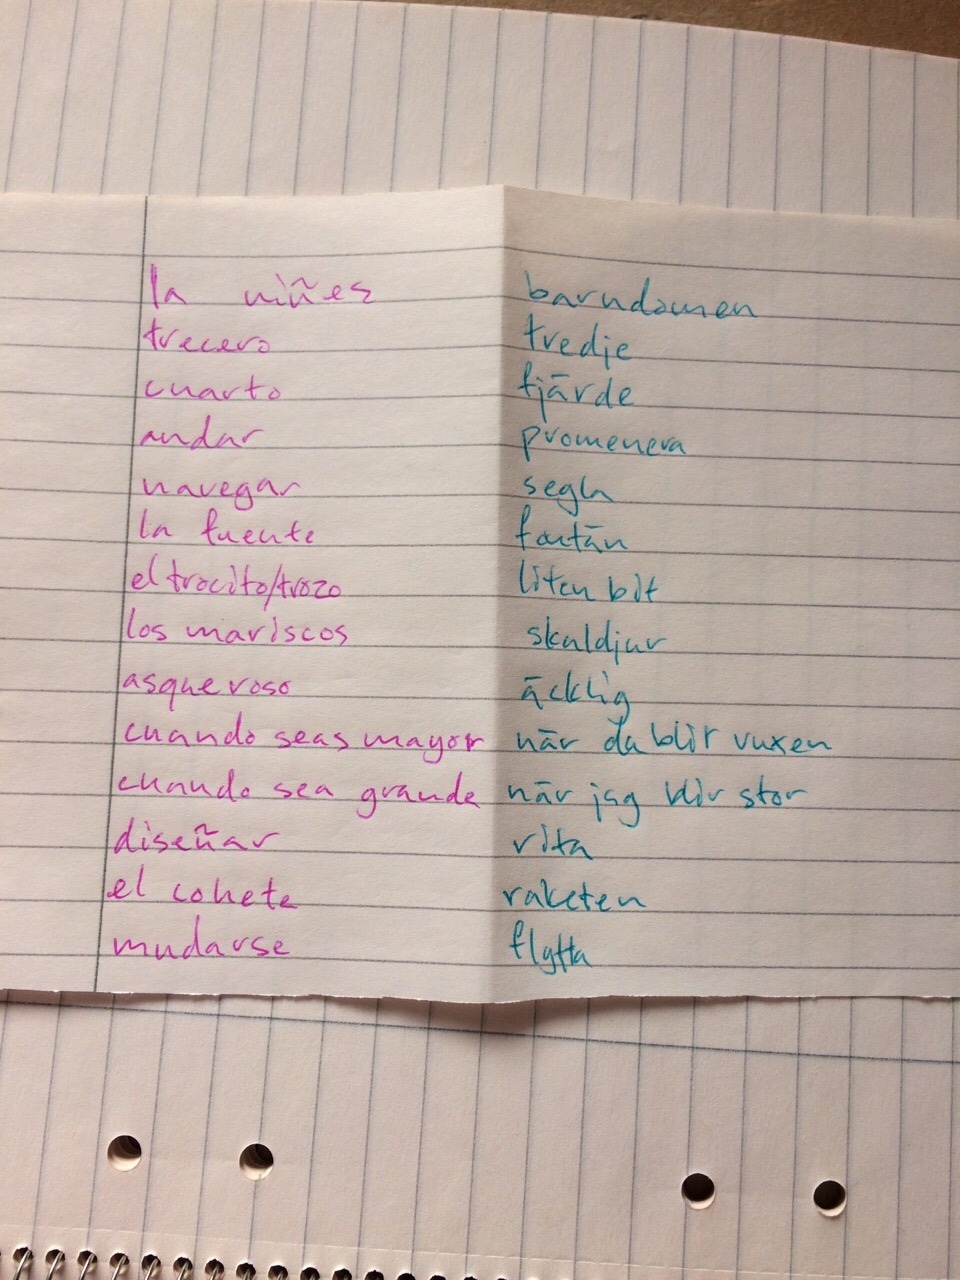 la niñes barndomen
trecero tredje
cuarto fjärde
andar promenera
navegar segla
la fuente fontän
el trocito/trozo liten bit
los mariscos skaldjur
asqueroso äcklig
cuando seas mayor när du blir vuxen
cuando sea grande när jag blir stor
diseñar rita
el cohete raketen
mudarse flytta